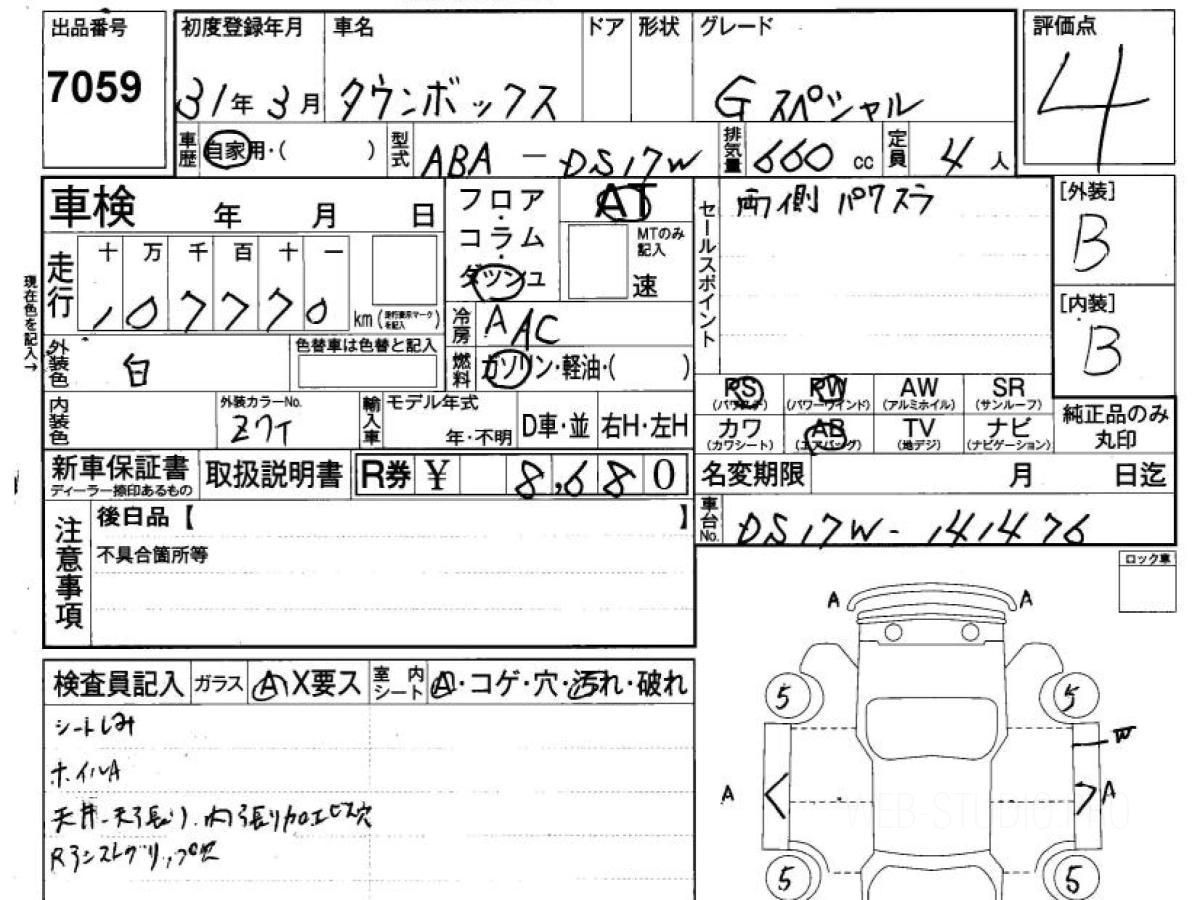 出品番号
7059
初度登録年月 車名 ドア 形状 グレード
31年 3月 タウンボックス Gスペシャル
評価点
4
車歴 自家用・( ) 型式 ABA - DS17W 排気量 660 cc 定員 4 人
車検 年 月 日
フロア・コラム・ダッシュ
AT
MTのみ記入
速
セールスポイント
両側 パワスラ
[外装]
B
[内装]
B
現在色を記入→
走行
十 万 千 百 十 一
1 0 7 7 7 0 km (走行表示マークを記入)
冷房 AAC
外装色 白 色替車は色替と記入
燃料 ガソリン・軽油・( )
内装色
外装カラーNo.
Z7T
輸入車
モデル年式
年・不明
D車・並 右H・左H
PS (パワステ) PW (パワーウインド) AW (アルミホイル) SR (サンルーフ)
カワ (カワシート) AB (エアバッグ) TV (地デジ) ナビ (ナビゲーション)
純正品のみ丸印
新車保証書
ディーラー捺印あるもの
取扱説明書
R券 ¥ 8,680
名変期限 月 日迄
車台No. DS17W - 141476
注意事項
後日品【 】
不具合箇所等
ロック車
検査員記入 ガラス A\X要ス 室内シート A・コゲ・穴・汚れ・破れ
シートしみ
ホイルA
天井
A A
5 5
W
A A
5 5
WEB-STUDIO.PRO